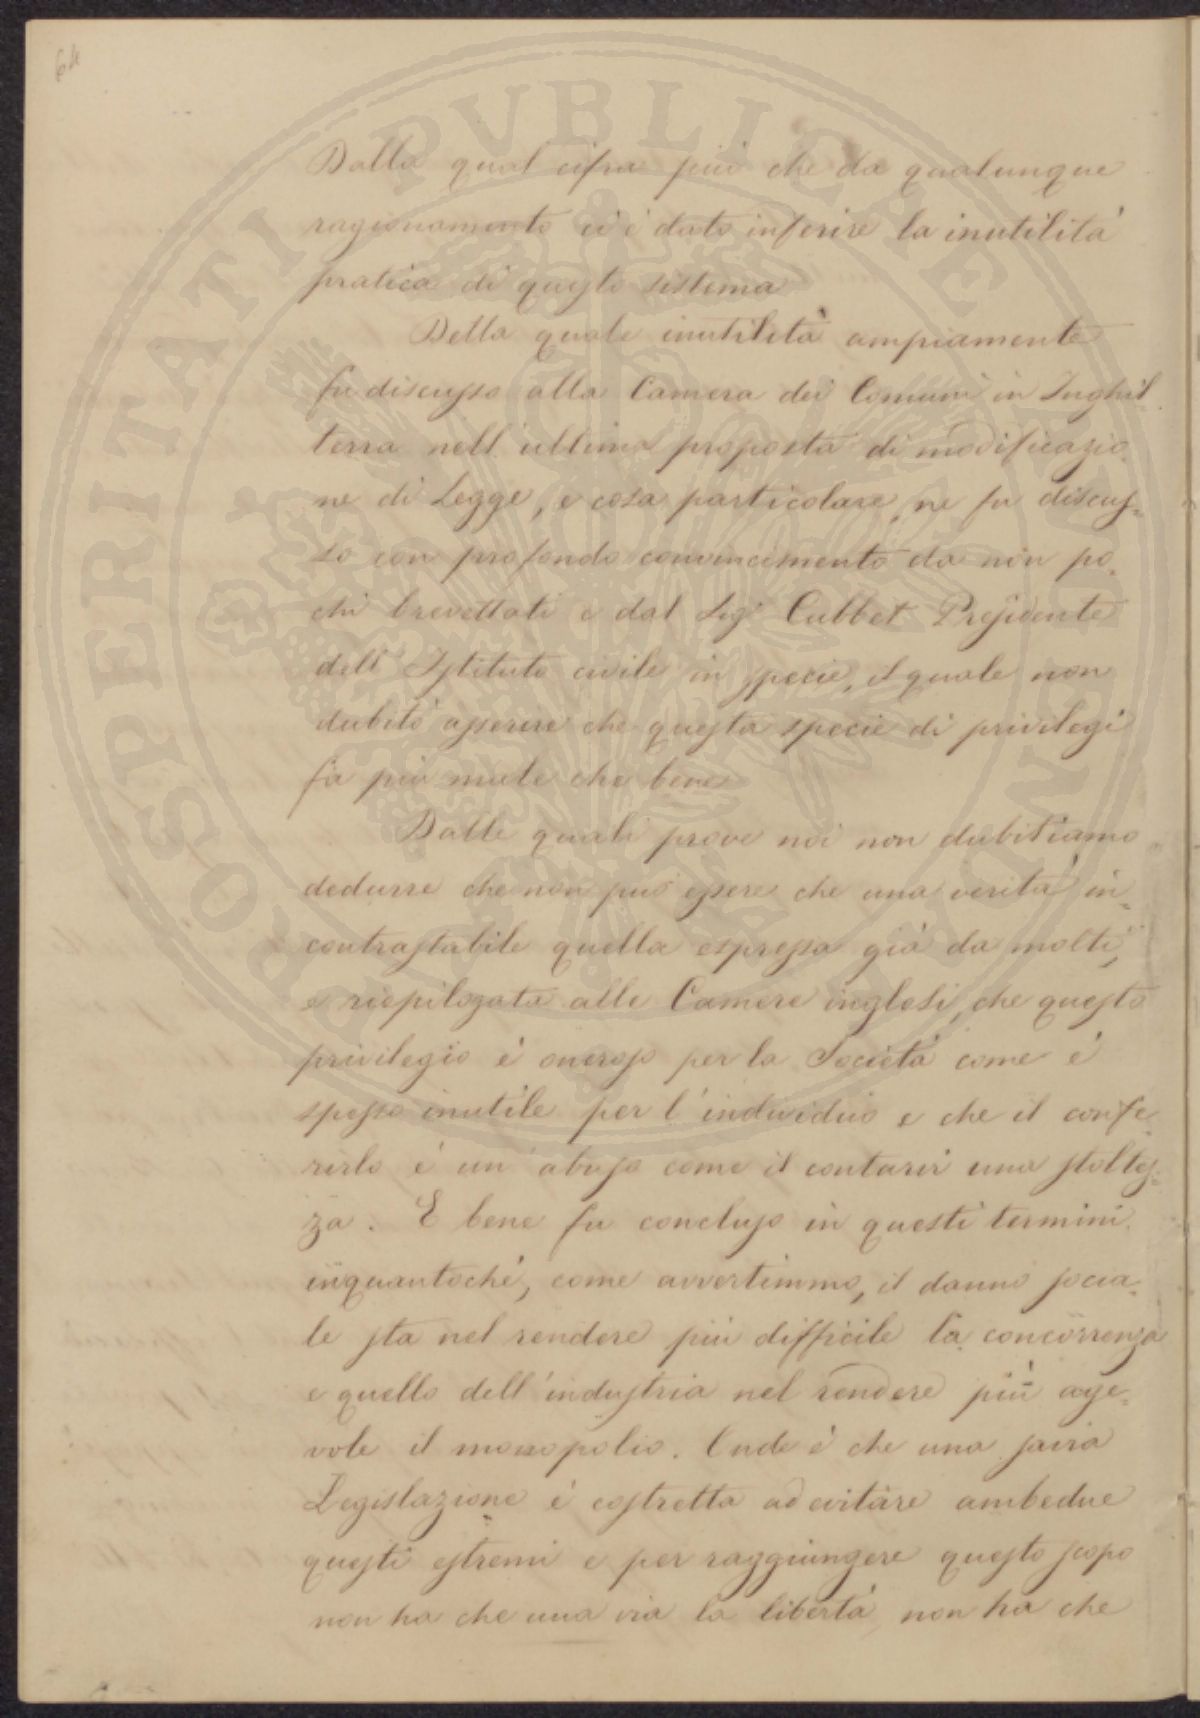 64
Dalla qual cifra più che da qualunque
ragionamento ci è dato inferire la inutilità
pratica di questo sistema
Della quale inutilità ampiamente
fu discusso alla Camera dei Comuni in Inghil
terra nell'ultima proposta di modificazio
ne di Legge, e cosa particolare, ne fu discus=
so con profondo convincimento da non po=
chi brevettati e dal Sig.r Cubbet Presidente
dell'Istituto civile in specie, il quale non
dubitò asserire che questa specie di privilegi
fa più male che bene
Dalle quali prove noi non dubitiamo
dedurre che non può essere che una verità in=
contrastabile quella espressa già da molti,
e riepilogata alle Camere inglesi, che questo
privilegio è oneroso per la Società come è
spesso inutile per l'individuo e che il confe
rirlo è un'abuso come il contarvi una stoltez=
za. E bene fu concluso in questi termini
inquantochè, come avvertimmo, il danno socia=
le sta nel rendere più difficile la concorrenza
e quello dell'industria nel rendere più age=
vole il monopolio. Onde è che una savia
Legislazione è costretta ad evitare ambedue
questi estremi e per raggiungere questo scopo
non ha che una via la libertà, non ha che
PROSPERITATI PVBLICAE